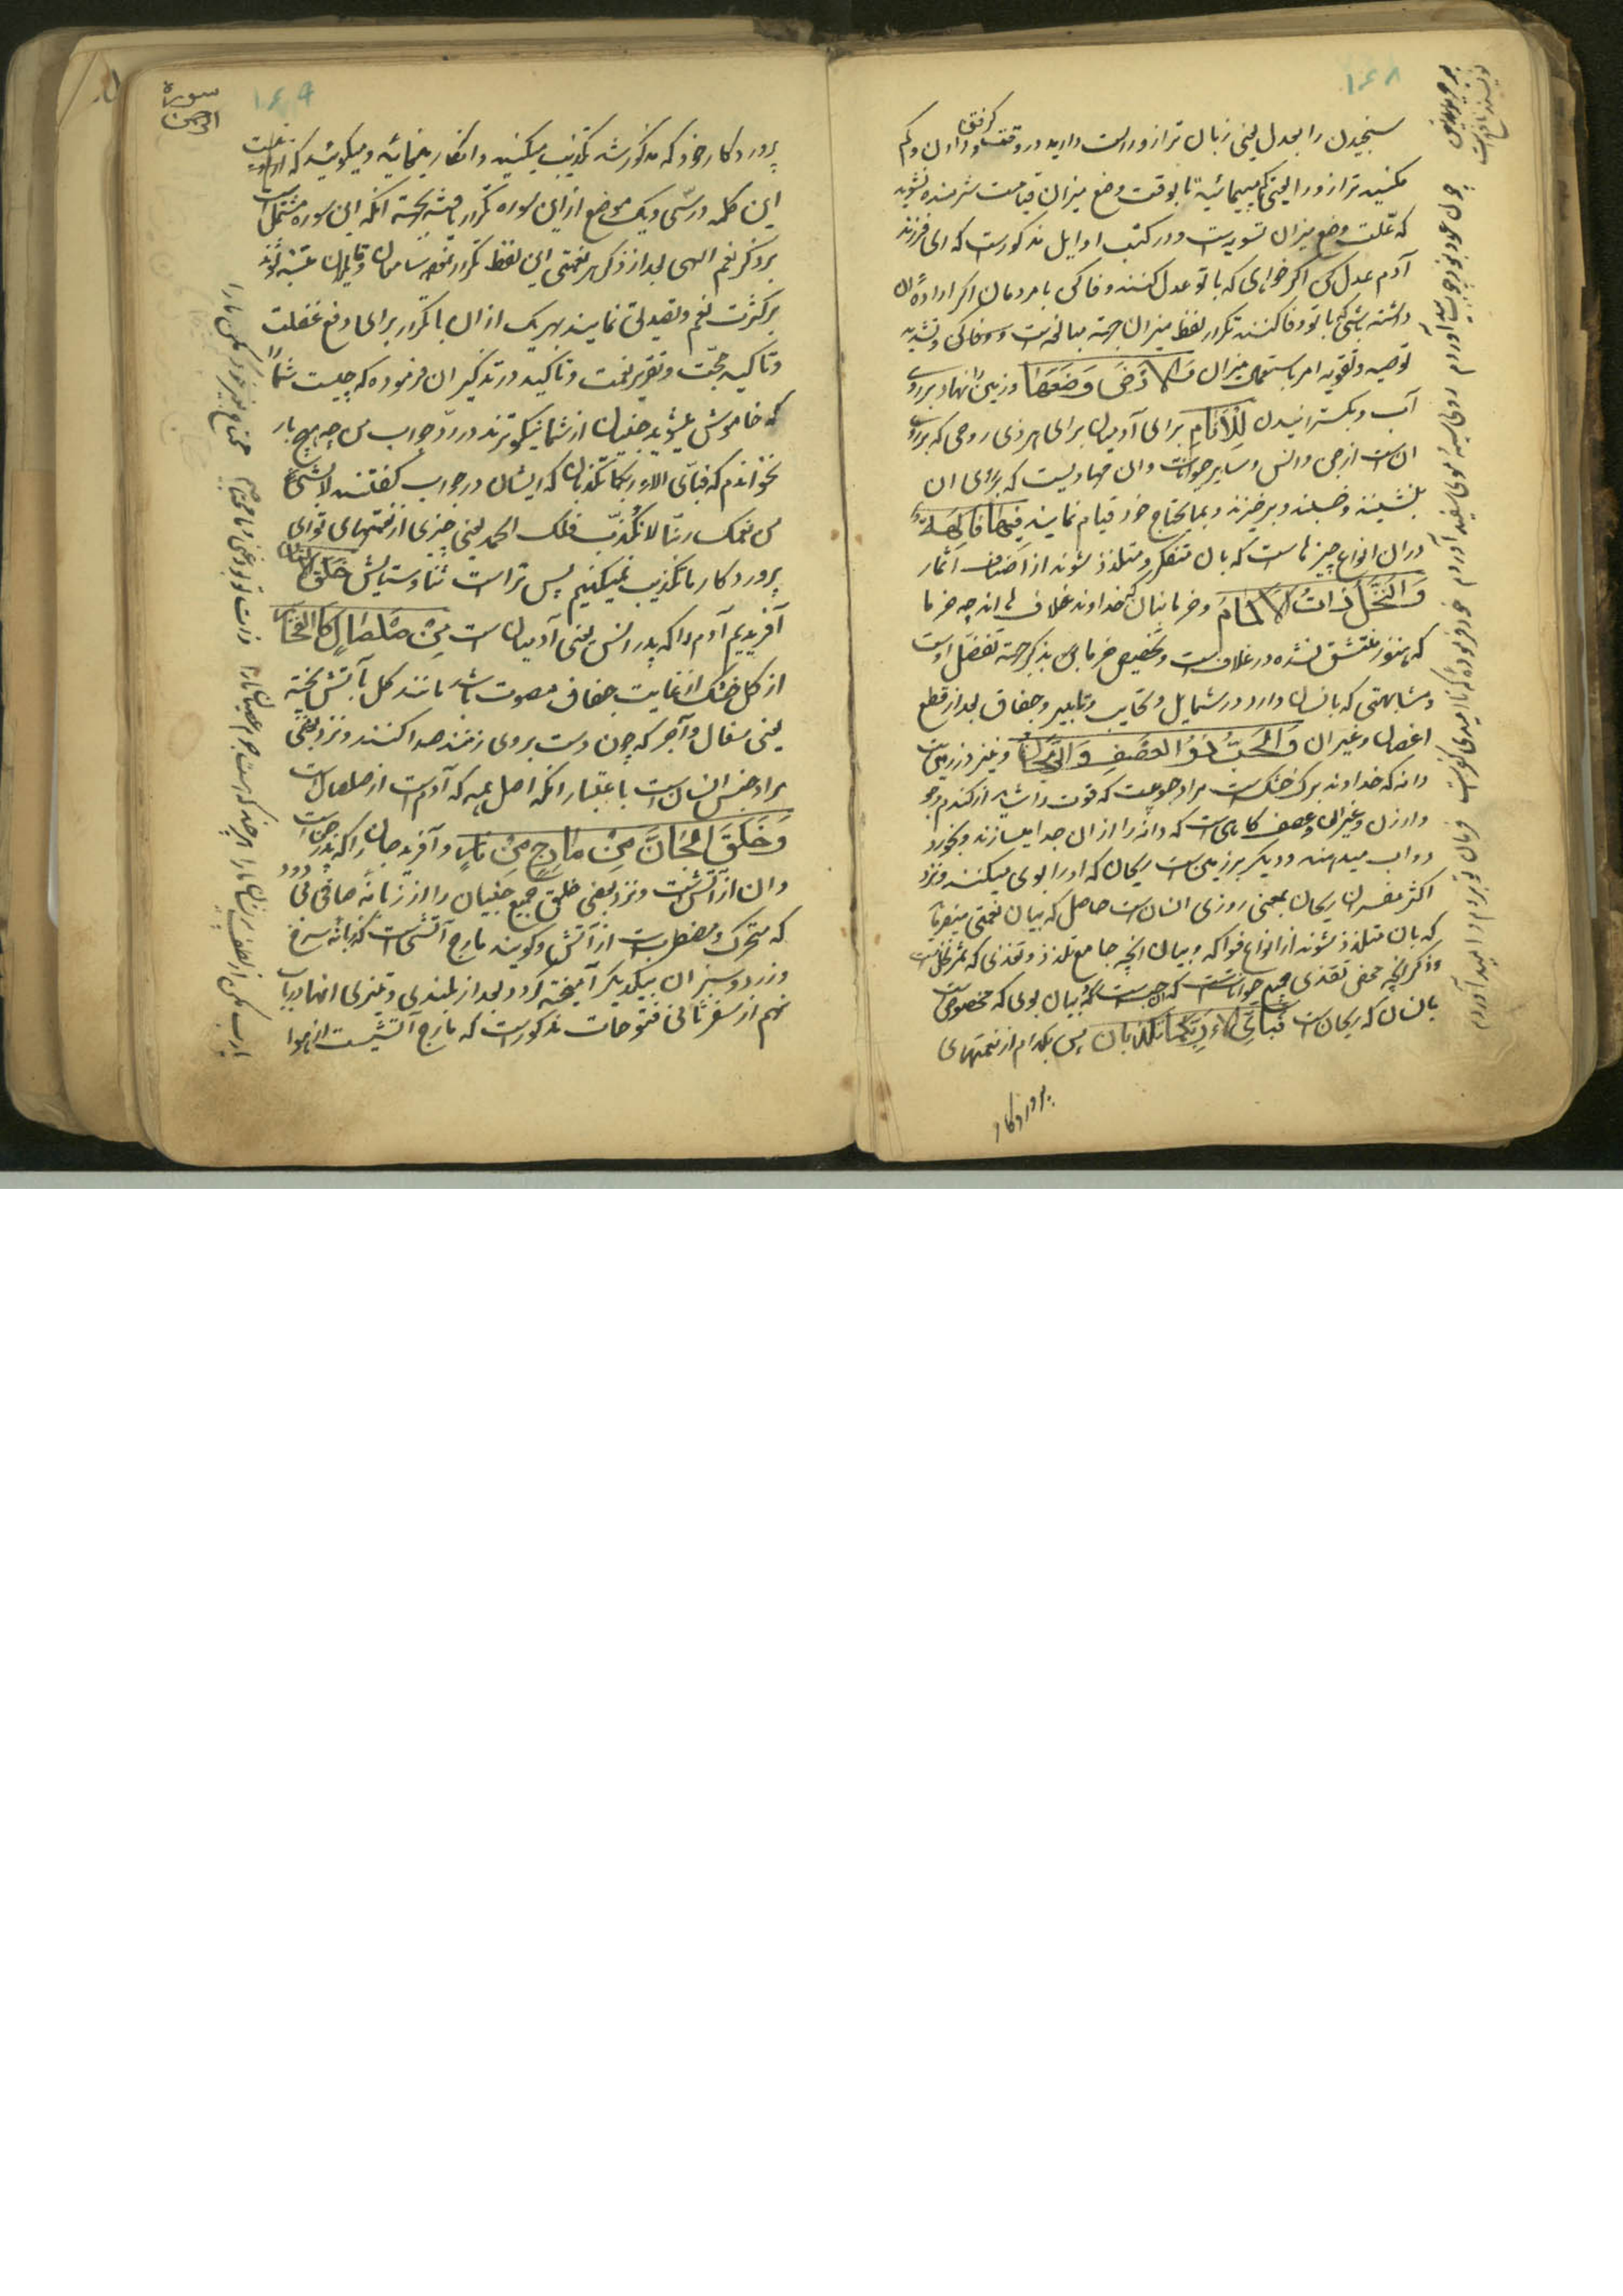 ۱۶۸
سنجیدن را بعدل یعنی زبان ترازو راست دارید در وقت گرفتن و دادن و کم
مکنید ترازو را یعنی کم مپیمائید تا بوقت وضع میزان قیامت شرمنده نشوید
که علت وضع میزان تسویه است و در کتب اوایل مذکورست که ای فرزند
آدم عدل کن اگر خواهی که با تو عدل کنند و وفا کن با مردمان اگر اراده آن
داشته باشی که با تو وفا کنند تکرار لفظ میزان جهة مبالغه است و وفا کن و تشدید
توصیه و تقویه امر باستعمال میزان وَالْاَرْضَ وَضَعَهَا و زمین را نهاد بر روی
آب و بگسترانیدن لِلْاَنَامِ برای آدمیان برای هر ذی روحی که بر روی
ان است از جن و انس و سایر حیوانات وان مهادیست که بر روی ان
بنشینند و خسپند و برخیزند و بما یحتاج خود قیام نمایند فِيهَا فَاكِهَةٌ
در ان انواع چیزهاست که بان متفکه و متلذذ شوند از اصناف اثمار
وَالنَّخْلُ ذَاتُ الْاَكْمَامِ و خرمابنان که خداوند غلاف ها اند چه خرما
که هنوز منشق نشده در غلاف است و تخصیص خرما بن بذکر جهة تفضل اوست
و مشابهتی که بانسان دارد در شمایل و عجایب و تابیر و جفاف بعد از قطع
اغصان و غیر ان وَالْحَبُّ ذُو الْعَصْفِ وَالرَّيْحَانُ و نیز در زمین است
دانه که خداوند برگ خشک است مراد حبوبیست که قوت را شاید از گندم و جو
و ارزن و غیران و عصف کاهی است که دانه را از ان جدا میسازند و بخورد
دواب میدهند و دیگر بر زمین است ریحان که او را بوی میکنند و نزد
اکثر مفسران ریحان بمعنی روزی انسان است حاصل که بیان نعمتی میفرماید
که بان متلذذ شوند از انواع فواکه و بیان انچه جامع تلذذ و تغذی که ثمر نخل است
و ذکر انچه محض تغذی جمیع حیواناتست که ان حبست و بیان بوی که مخصوص است
بانسان که ریحان است فَبِاَيِّ اٰلَاءِ رَبِّكُمَا تُكَذِّبَانِ پس بکدام از نعمتهای
پروردگار
سورة الرحمن
۱۶۹
پروردگار خود که مذکور شد تکذیب میکنید و انکار مینمائید و میگوئید که از او نیست
این کلمه در سی و یک موضع از این سوره تکرار یافته بجهة انکه این سوره مشتمل است
بر ذکر نعم الهی بعد از ذکر هر نعمتی این لفظ تکرار نمود تا سامعان و قابلان متنبه شوند
بر کثرت نعم و تعدیل نمایند بهر یک از ان با تکرار برای دفع غفلت
و تاکید حجت و تقریر نعمت و تاکید در تذکیر ان فرموده که چیست شما را
که خاموش میشوید جنیان از شما نیکوترند در رد جواب من چه هیچ بار
نخواندم که فبای الاء ربکما تکذبان که ایشان در جواب گفتند لا بشی
من نعمک ربنا لا نکذب فلک الحمد یعنی چیزی از نعمتهای تو ای
پروردگار ما تکذیب نمیکنیم پس تراست ثنا و ستایش خَلَقَ الْاِنْسَانَ
آفریدیم آدم را که پدر انس یعنی آدمیان است مِنْ صَلْصَالٍ كَالْفَخَّارِ
از گل خشک از غایت جفاف مصوت باشد مانند گل بآتش پخته
یعنی سفال و آجر که چون دست بروی زنند صدا کنند و نزد بعضی
مراد جنس انسان است باعتبار انکه اصل همه که آدم است از صلصال است
وَخَلَقَ الْجَانَّ مِنْ مَارِجٍ مِنْ نَارٍ و آفرید جان را که پدر جن است
و ان از آتش است و نزد بعضی خلق جمیع جنیان را از زبانه صافی بی دود
که متحرک و مضطرب است از آتش و گویند مارج آتشی است که زبانه سرخ
و زرد و سبز ان بیکدیگر آمیخته گردد بعد از بلندی و تیزی انها در باب
نهم از سفر ثانی فتوحات مذکورست که مارج آتشیست از هوا